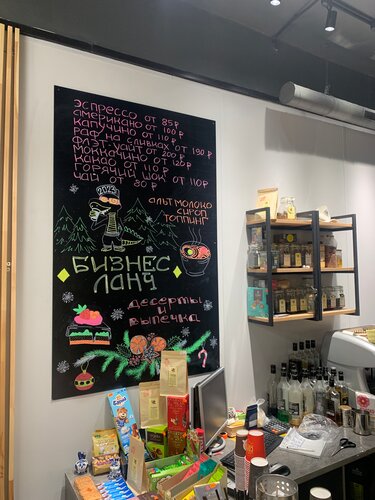 ЭСПРЕССО ОТ 85₽
АМЕРИКАНО ОТ 100₽
КАПУЧИНО ОТ 110₽
РАФ НА СЛИВКАХ ОТ 190₽
ФЛЭТ-УАЙТ ОТ 200₽
МОККАЧИНО ОТ 120₽
КАКАО ОТ 110₽
ГОРЯЧИЙ ШОК ОТ 110₽
ЧАЙ ОТ 80₽
2022
АЛЬТ МОЛОКО
СИРОП
ТОППИНГ
БИЗНЕС
ЛАНЧ
ДЕСЕРТЫ
И
ВЫПЕЧКА